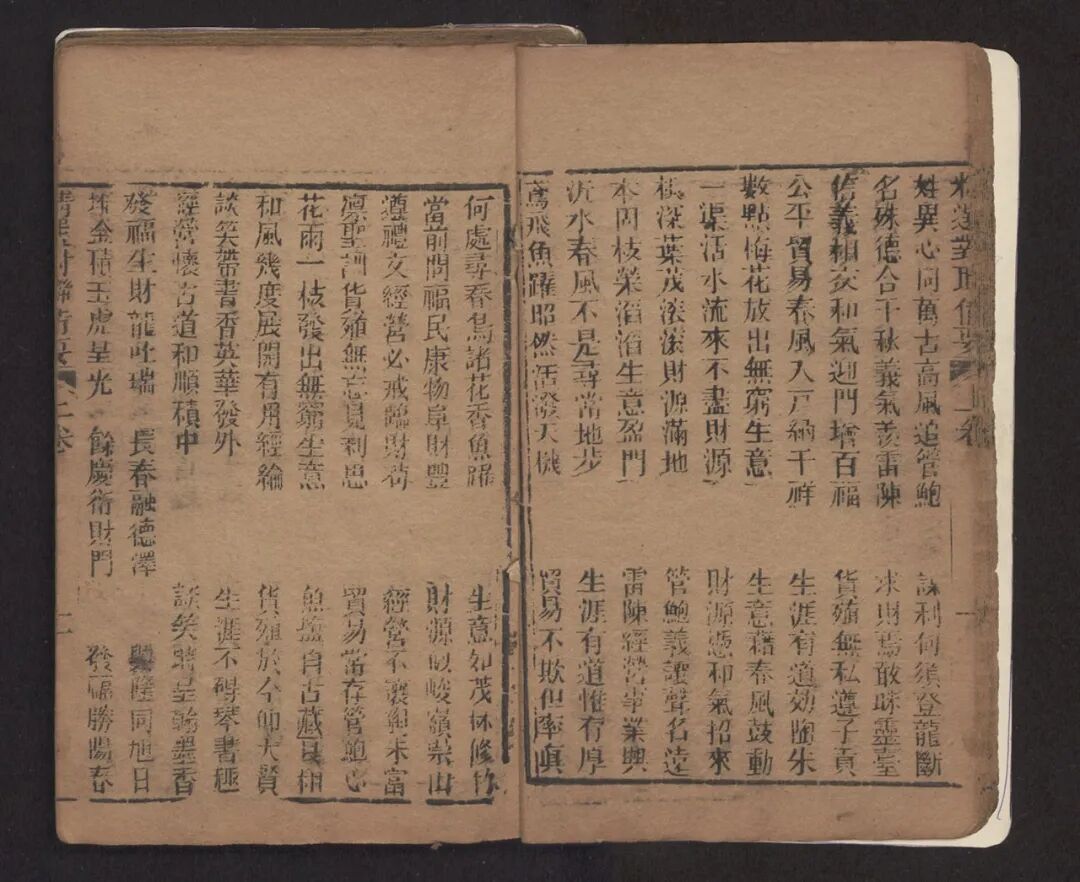 姓異心同萬古高風追管鮑
謀利何須登龍斷
名殊德合千秋義氣羨雷陳
求財焉敢昧靈臺
信義相交和氣迎門增百福
貨殖無私遵子貢
公平貿易春風入戸納千祥
生涯有道効陶朱
數點梅花放出無窮生意
生意藉春風鼓動
一渠活水流來不盡財源
財源憑和氣招來
根深葉茂滚滚財源滿地
管鮑義讓聲名遠
本固枝榮滔滔生意盈門
雷陳經營事業興
沂水春風不是尋常地步
生涯有道惟存厚
鳶飛魚躍昭然活潑天機
貿易不欺但率眞
何處尋春鳥諸花香魚躍
生意如茂林修竹
當前問福民康物阜財豐
財源似峻嶺崇山
遵禮文經營必戒臨財苟
經營不讓
凛聖訓貨殖無忘見利思
貿易當存管鮑心
花雨一枝發出無窮生意
魚鹽自古藏良相
和風幾度展開有用經綸
貨殖於今仰大賢
談笑帶書香英華發外
生涯不碍琴書趣
經營懷古道和順積中
談笑聘呈翰墨香
發福生財龍吐瑞
長春融德澤
興隆同旭日
堆金積玉虎呈光
餘慶衍財門
發福勝陽春
二